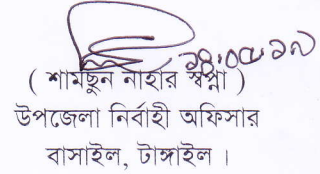 ( শামছুন নাহার স্বপ্না )
উপজেলা নির্বাহী অফিসার
বাসাইল, টাঙ্গাইল ।